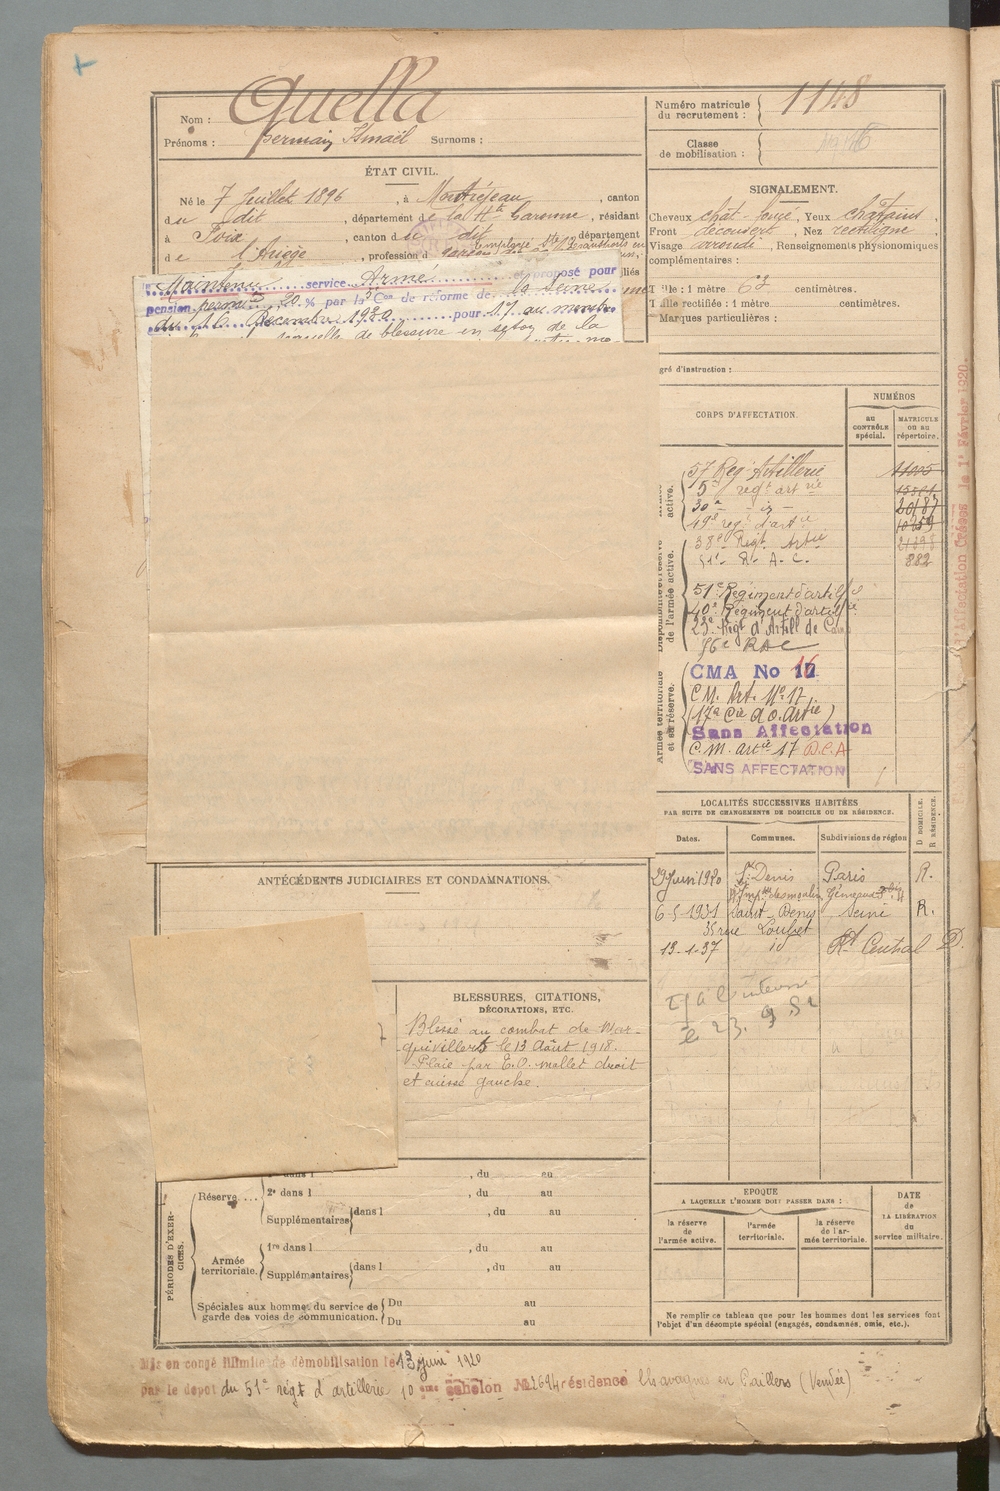 Nom : Quella
Prénoms : Germain Ismaël Surnoms :
Numéro matricule du recrutement : 1148
Classe de mobilisation :
ÉTAT CIVIL.
Né le 7 Juillet 1896, à Montréjeau, canton
du dit, département de la Hte Garonne, résidant
à Foix, canton du dit, département
de l'Ariège, profession d
SIGNALEMENT.
Cheveux chât-foncé, Yeux châtains,
Front découvert, Nez rectiligne,
Visage arrondi, Renseignements physionomiques
complémentaires :
Taille : 1 mètre 63 centimètres.
Taille rectifiée : 1 mètre centimètres.
Marques particulières :
Maintenu service Armé et proposé pour
pension perman 20 % par la Con de réforme de la Seine
du 16 Décembre 1930 pour : 1º/ au membre
séquelle de blessure en séton de la
gré d'instruction :
CORPS D'AFFECTATION.
NUMÉROS
au CONTRÔLE spécial.
MATRICULE ou au répertoire.
active.
57 Rég Artillerie
5e regt art rie
30e - id - 20187
49e regt d'art ie 10259
38e Regt Artie
51e R. A. C. 882
Disponibilité et réserve de l'armée active.
51e Régiment d'artie
40e Régiment d'artie
23e Regt d'Artill de Camp
76e RAC
Armée territoriale et sa réserve.
CMA No 17 16
C. M. Art. No 17
(17e Cie d'O. Artie)
Sans Affectation
C. M. artie 17 D.C.A
SANS AFFECTATION
d'Affectation Créées le 1er Février 1920.
LOCALITÉS SUCCESSIVES HABITÉES
PAR SUITE DE CHANGEMENTS DE DOMICILE OU DE RÉSIDENCE.
Dates. Communes. Subdivisions de région
D DOMICILE. R RÉSIDENCE.
29 Juin 1920 St Denis Paris R.
6-5-1931 Saint Denis Seine R.
35 rue Loubet
13-1-37 id Rt Central D.
le 23. 9 52
ANTÉCÉDENTS JUDICIAIRES ET CONDAMNATIONS.
BLESSURES, CITATIONS,
DÉCORATIONS, ETC.
Blessé au combat de Mar-
quivillers le 13 Août 1918.
Plaie par E.O. mollet droit
et cuisse gauche.
PÉRIODES D'EXERCICES.
Réserve....
dans l , du au
2e dans l , du au
Supplémentaires dans l , du au
Armée territoriale.
1re dans l , du au
Supplémentaires dans l , du au
Spéciales aux hommes du service de garde des voies de communication.
Du au
Du au
EPOQUE
A LAQUELLE L'HOMME DOIT PASSER DANS :
la réserve de l'armée active.
l'armée territoriale.
la réserve de l'armée territoriale.
DATE de LA LIBÉRATION du service militaire.
Ne remplir ce tableau que pour les hommes dont les services font
l'objet d'un décompte spécial (engagés, condamnés, omis, etc.).
Mis en congé illimité de démobilisation le 13 juin 1920
par le dépot du 51e régt d'artillerie 10 ème échelon No 2694 résidence Chavagnes en Paillers (Vendée)